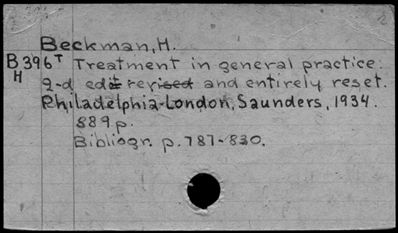 Beckman, H.
B396T Treatment in general practice.
H
2-d edit revised and entirely reset.
Philadelphia-London, Saunders, 1934.
889p.
Bibliogr. p. 787-830.